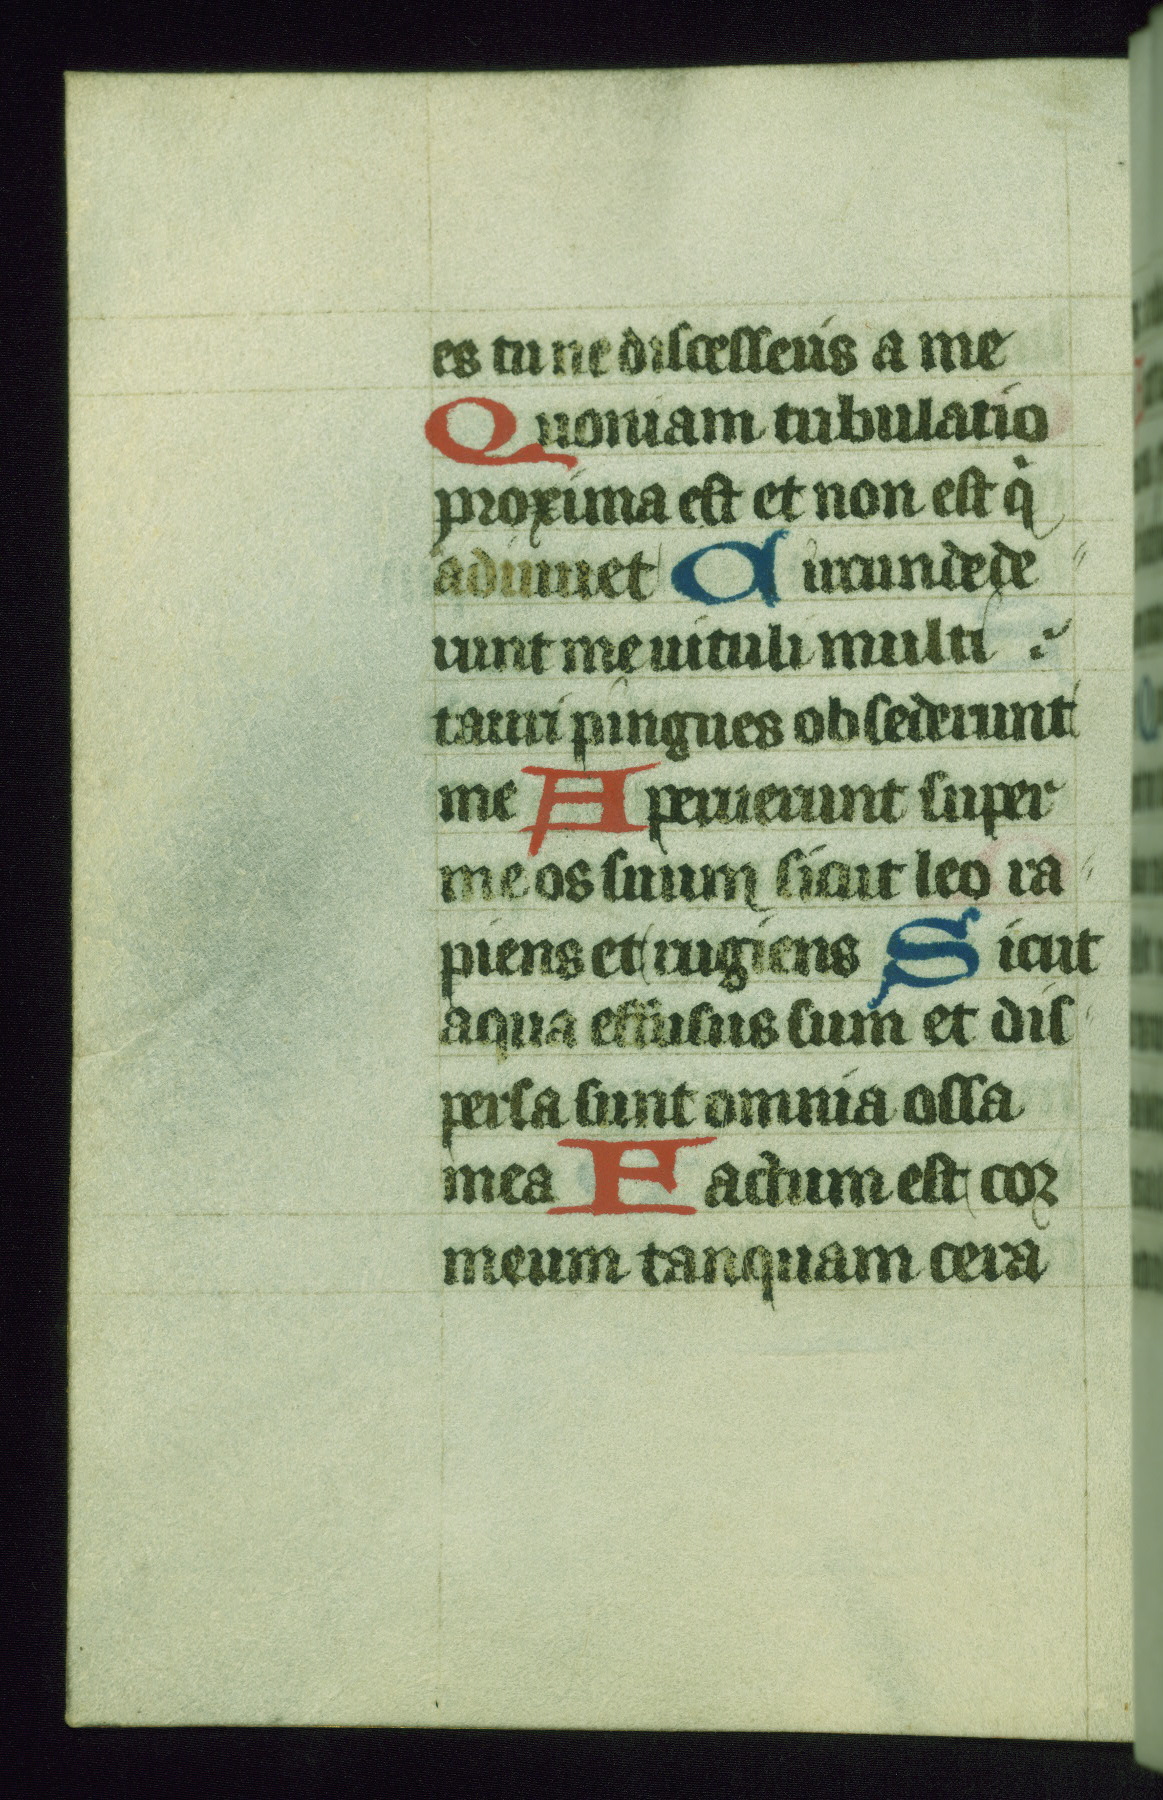 es tu ne discesseris a me
Quoniam tribulatio
proxima est et non est qͥ
adiuuet Circundede
runt me uituli multi
tauri pingues obsederunt
me Aperuerunt super
me os suum sicut leo ra
piens et rugiens Sicut
aqua effusus sum et dis
persa sunt omnia ossa
mea Factum est cor
meum tanquam cera